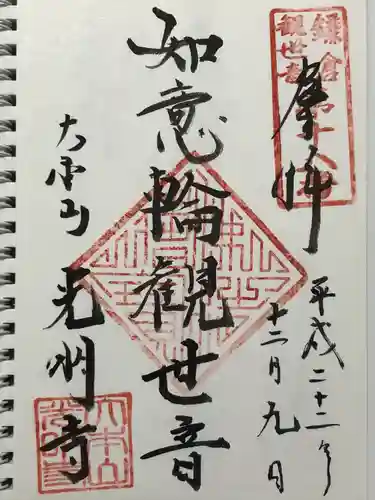 奉拝
平成二十二年
十二月九日
鎌倉
観世音
第十八番
如意輪観世音
光明寺